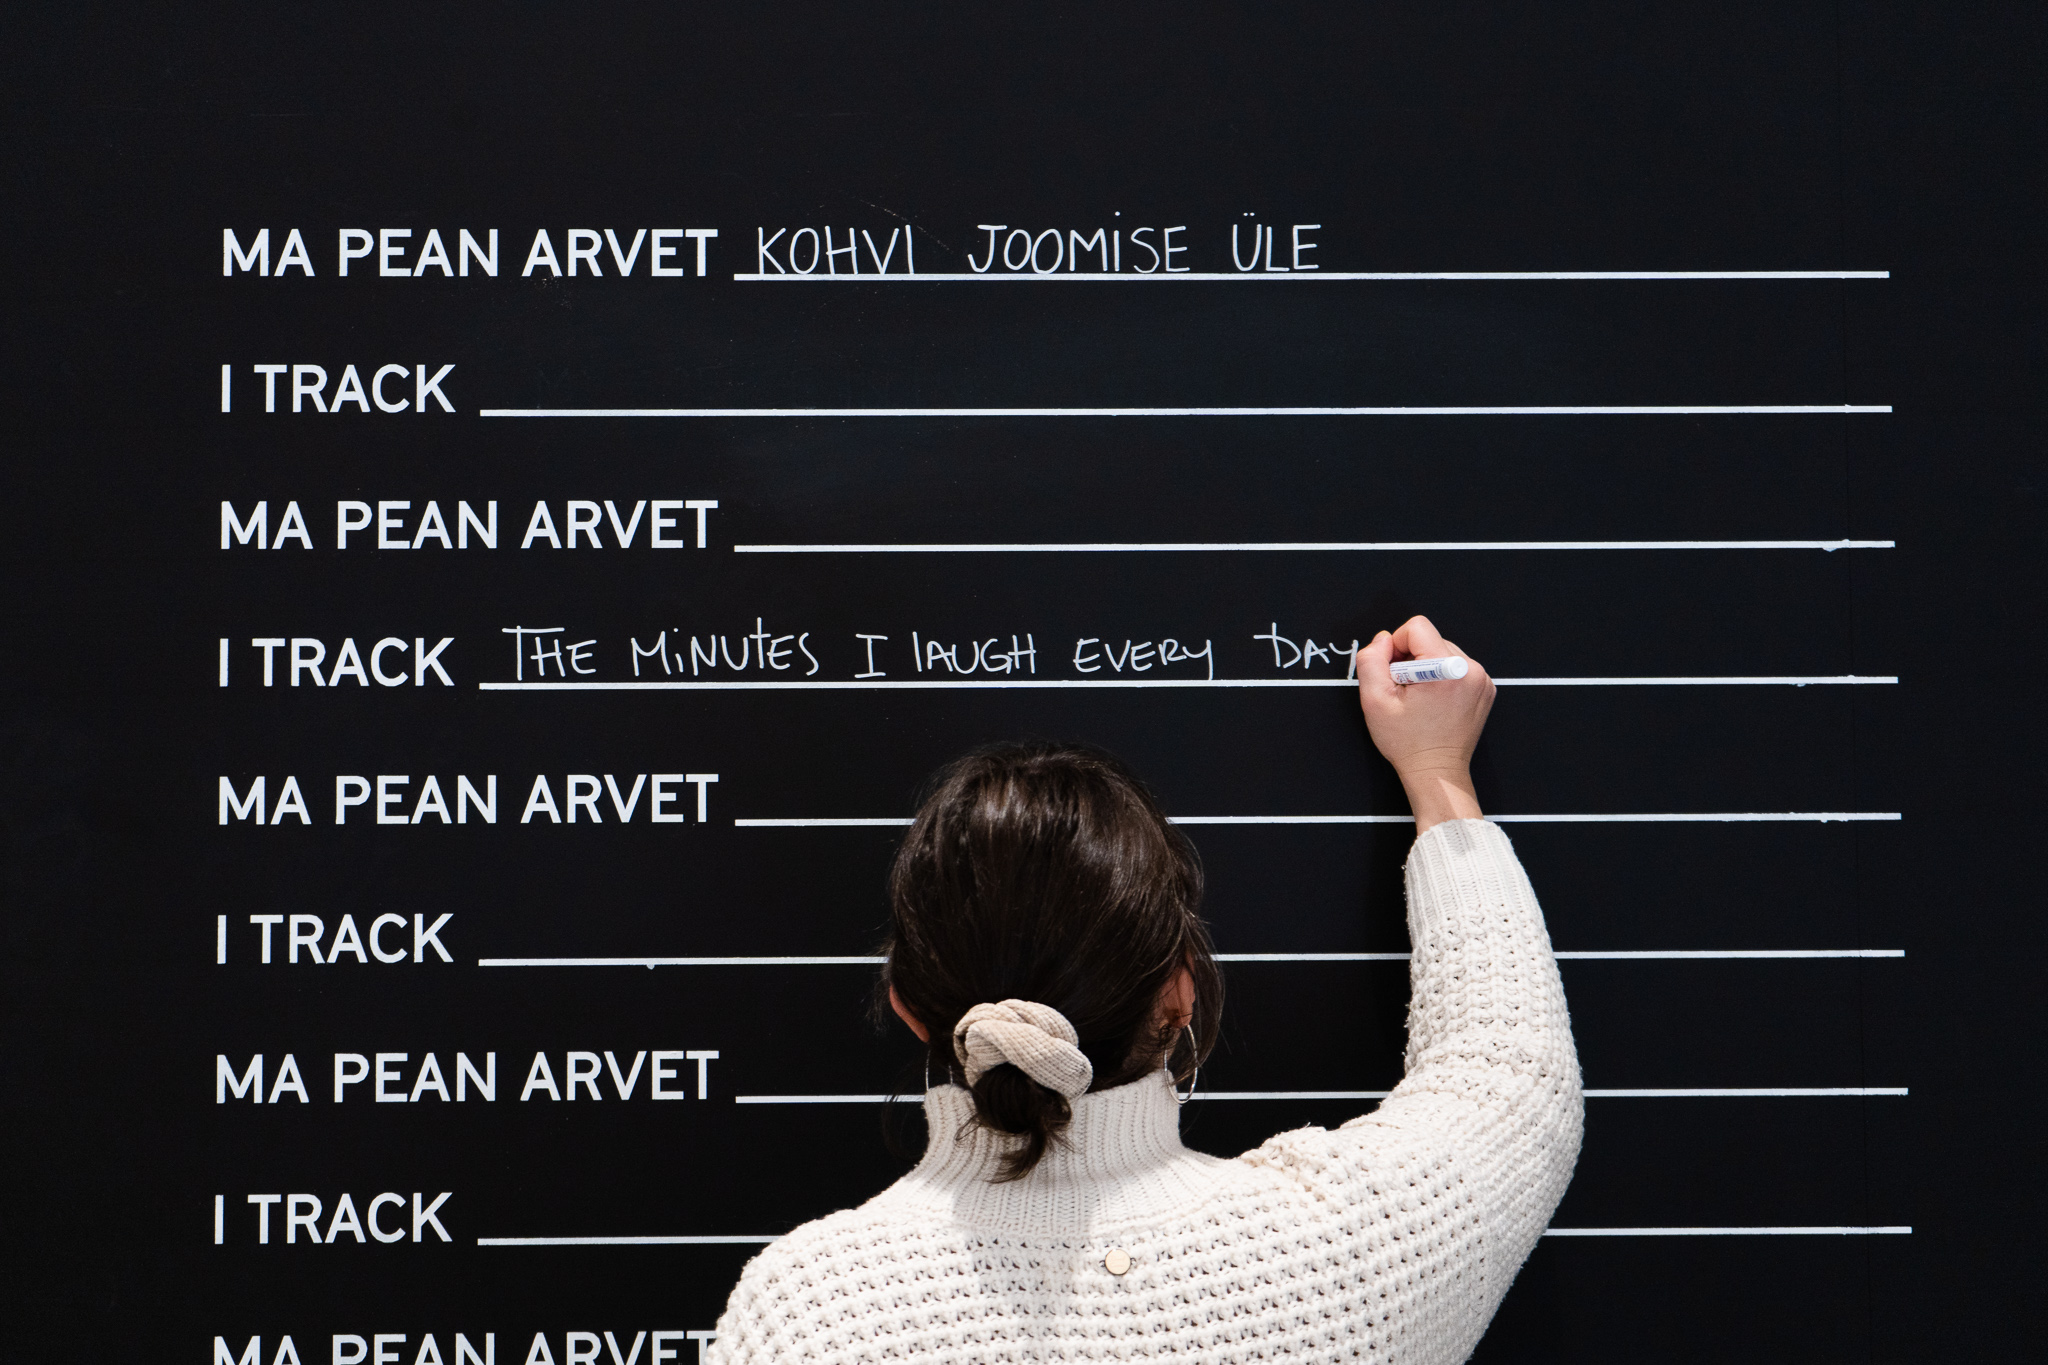 MA PEAN ARVET KOHVI JOOMISE ÜLE
I TRACK
MA PEAN ARVET
I TRACK THE MINUTES I LAUGH EVERY DAY
MA PEAN ARVET
I TRACK
MA PEAN ARVET
I TRACK
MA PEAN ARVET